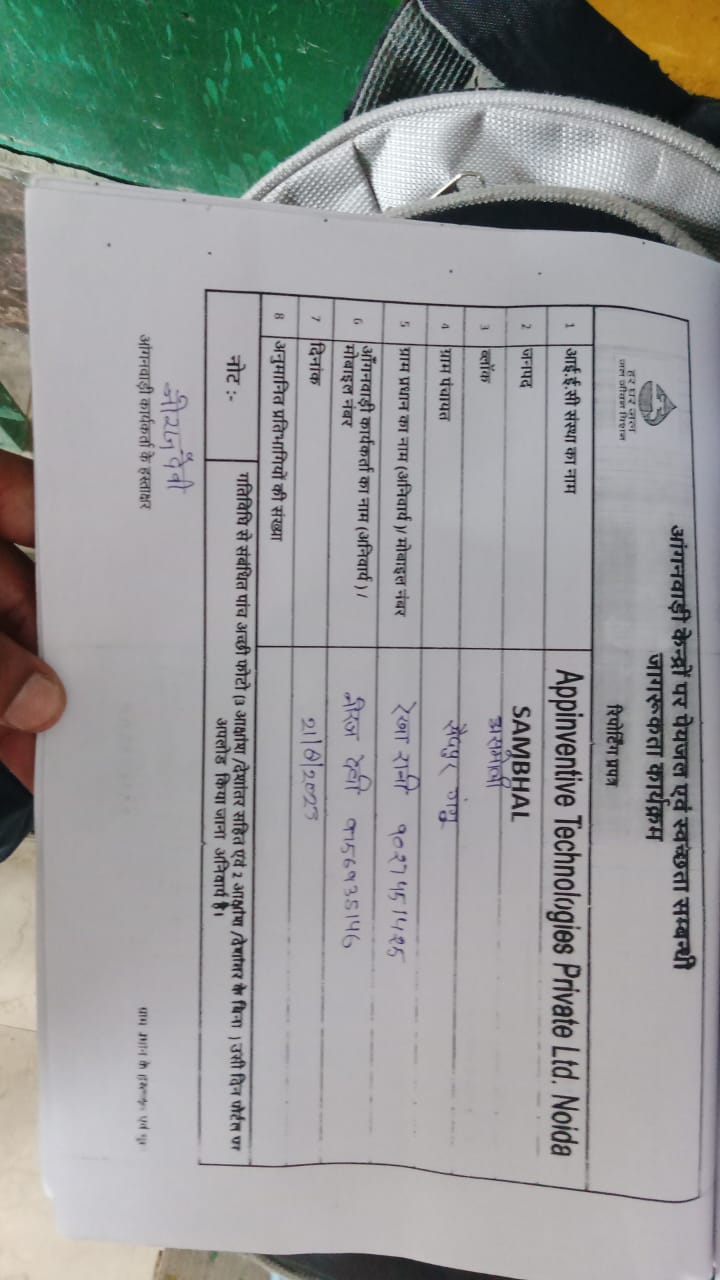 हर घर जल
जल जीवन मिशन
आंगनवाड़ी केन्द्रों पर पेयजल एवं स्वच्छता सम्बन्धी
जागरूकता कार्यक्रम
रिपोर्टिंग प्रपत्र
1 आई.ई.सी संस्था का नाम Appinventive Technologies Private Ltd. Noida
2 जनपद SAMBHAL
3 ब्लॉक असमोली
4 ग्राम पंचायत सैदपुर
5 ग्राम प्रधान का नाम (अनिवार्य)/ मोबाइल नंबर रेखा रानी
6 आँगनवाड़ी कार्यकर्ता का नाम (अनिवार्य) /
मोबाइल नंबर नीरज देवी
7 दिनांक 21/8/2023
8 अनुमानित प्रतिभागियों की संख्या
नोट :- गतिविधि से संबंधित पांच अच्छी फोटो (3 अक्षांश /देशांतर सहित एवं 2 अक्षांश /देशांतर के बिना ) उसी दिन पोर्टल पर
अपलोड किया जाना अनिवार्य है।
नीरज देवी
आंगनवाड़ी कार्यकर्ता के हस्ताक्षर
ग्राम प्रधान के हस्ताक्षर एवं